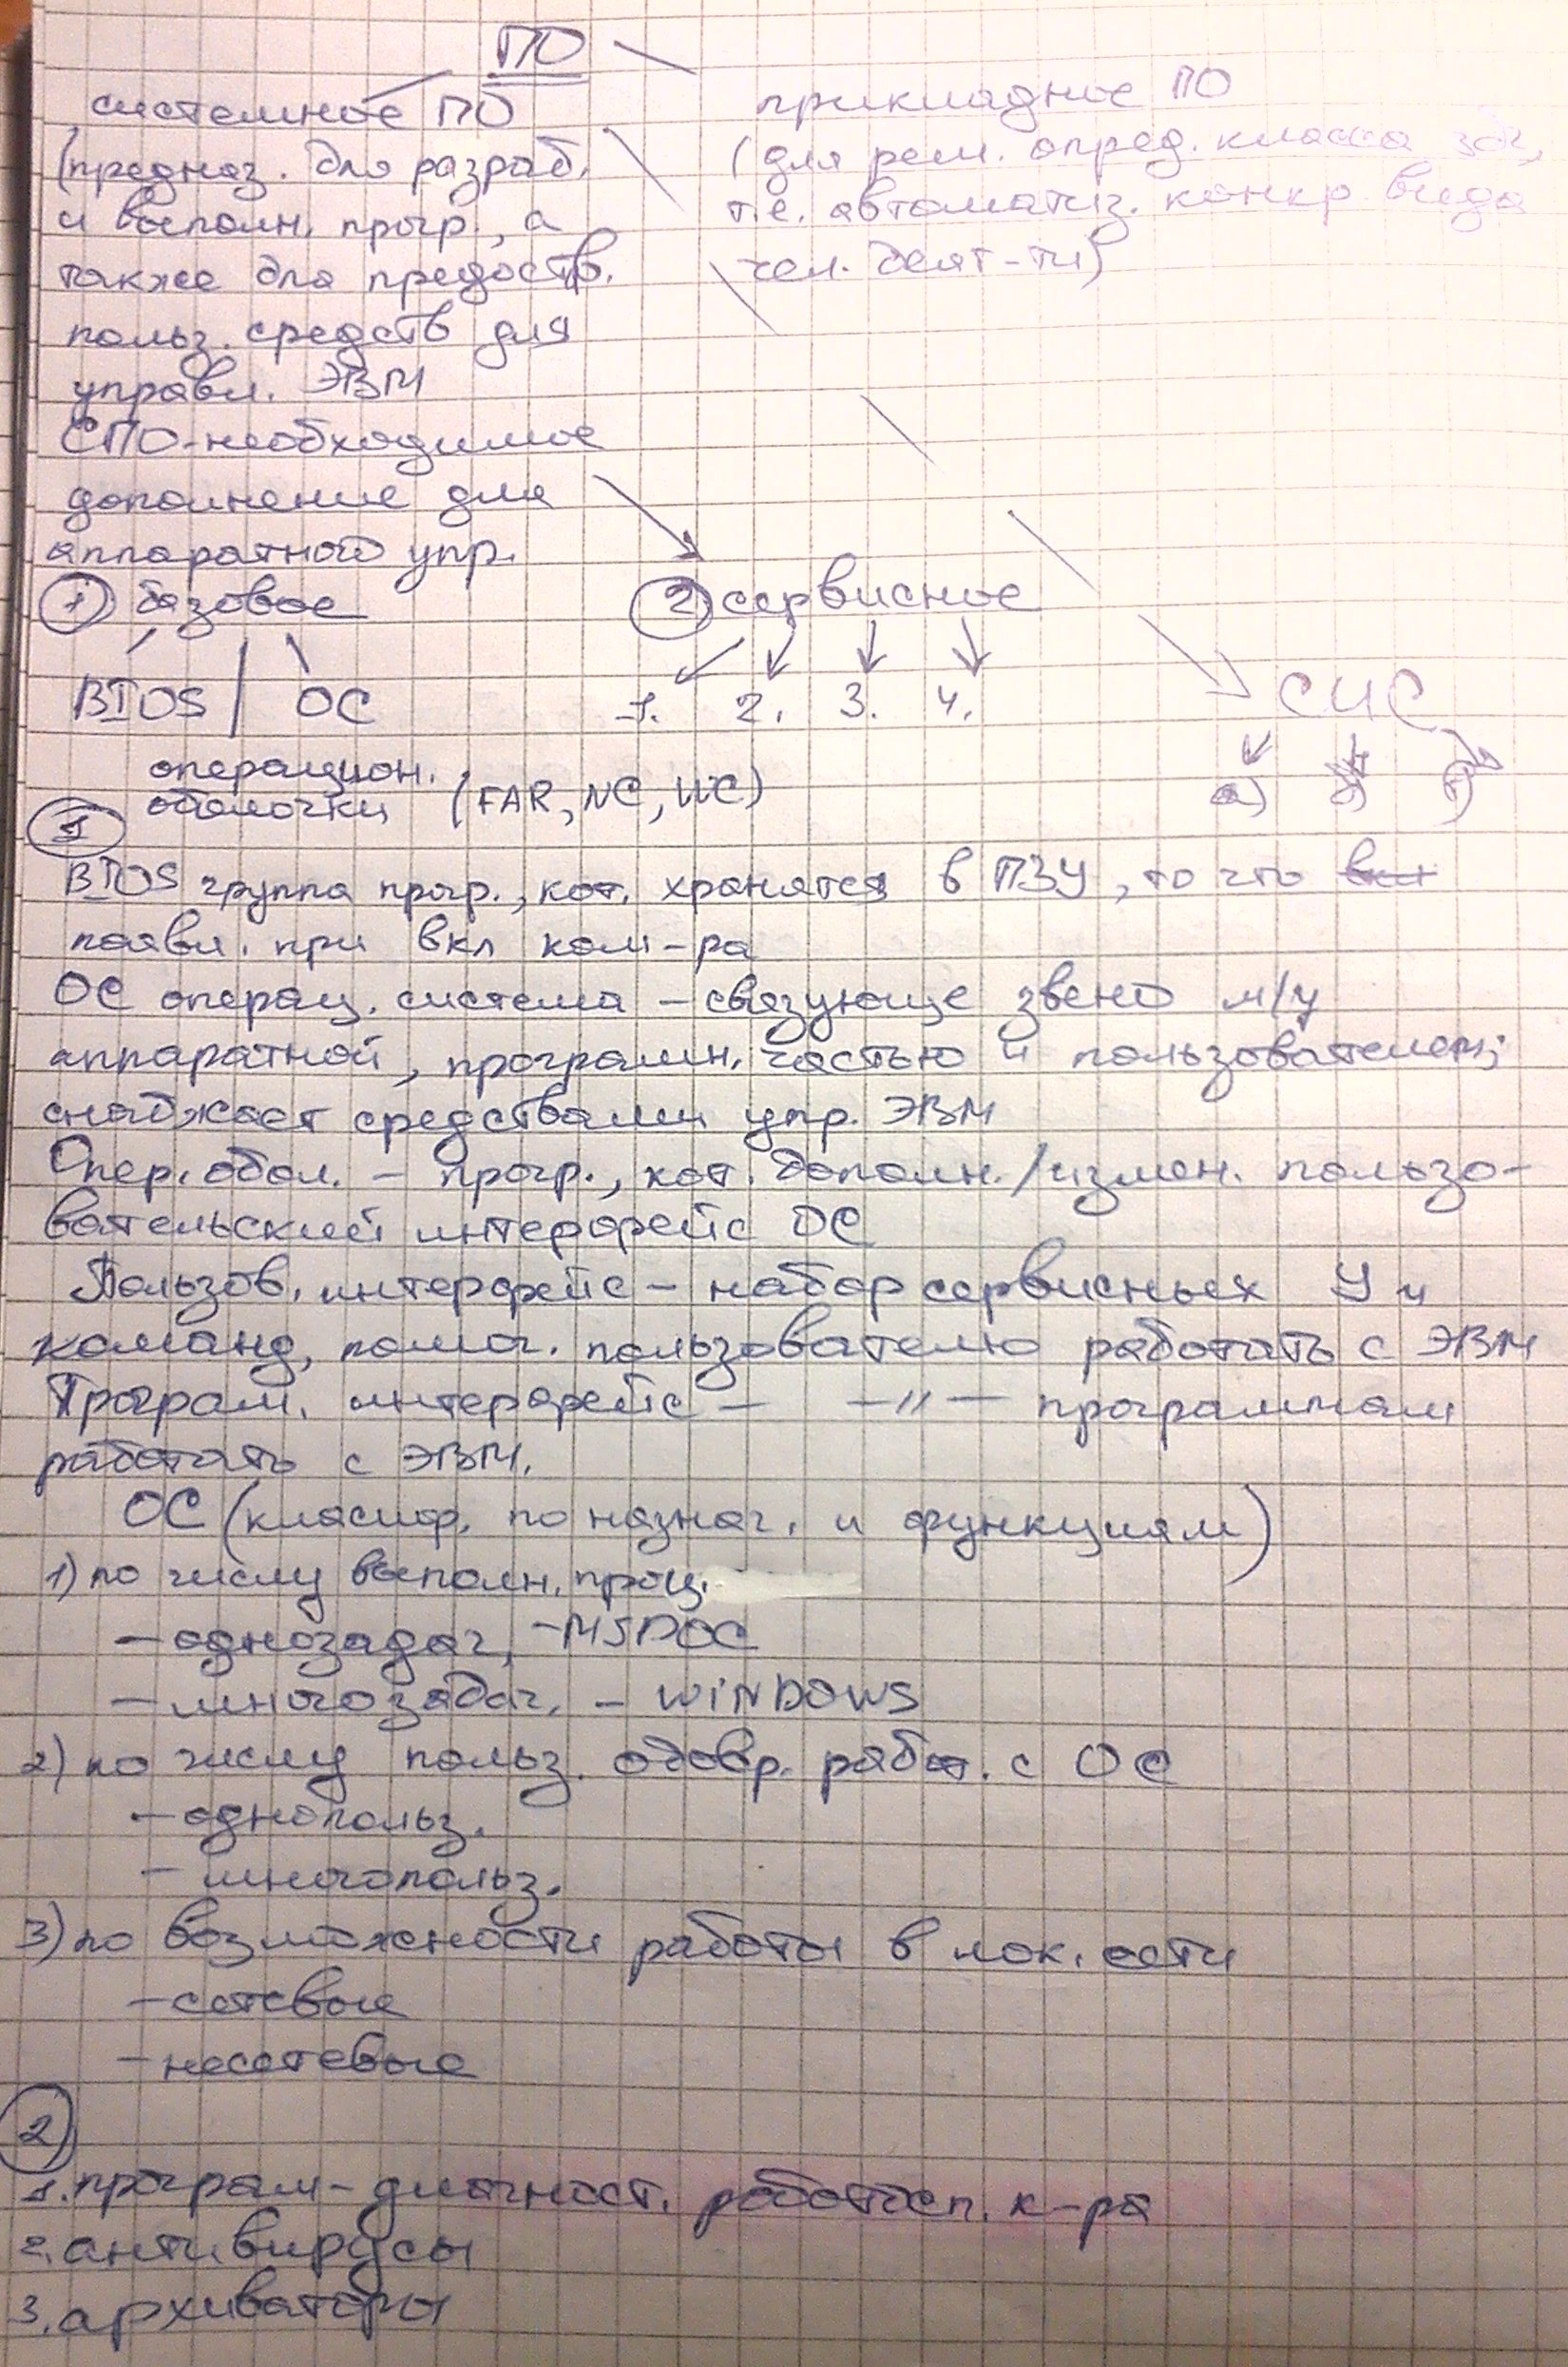 ПО
системное ПО
(предназ. для разраб.
и выполн. прогр., а
также для предоств.
польз. средств для
управл. ЭВМ
СПО-необходимое
дополнение для
аппаратной упр.
прикладное ПО
(для реш. опред. класса здч,
т.е. автоматиз. конкр. вида
чел. деят-ти)
1 базовое
2 сервисное
BIOS / ОС
1. 2. 3. 4.
СИС
а) б)
операцион.
оболочки (FAR, NC, WC)
1
BIOS группа прогр., кот. хранятся в ПЗУ, то что вкл
появл. при вкл ком-ра
ОС операц. система - связующе звено м/у
аппаратной, програмн. частью и пользователем;
снабжает средствами упр. ЭВМ
Опер. обол. - прогр., кот. дополн./измен. пользо-
вательский интерфейс ОС
Пользов. интерфейс - набор сервисных У и
команд, помог. пользователю работать с ЭВМ
Програм. интерфейс - -"- программам
работать с ЭВМ.
ОС (класиф. по назнач. и функциям)
1) по числу выполн. проц.
- однозадач, - MSDOC
- многозадач. - WINDOWS
2) по числу польз. одовр. работ. с ОС
- однопольз.
- многопольз.
3) по возможности работы в лок. сети
- сетевые
- несетевые
2
1. програм - диагност. работосп. к-ра
2. антивирусы
3. архиваторы